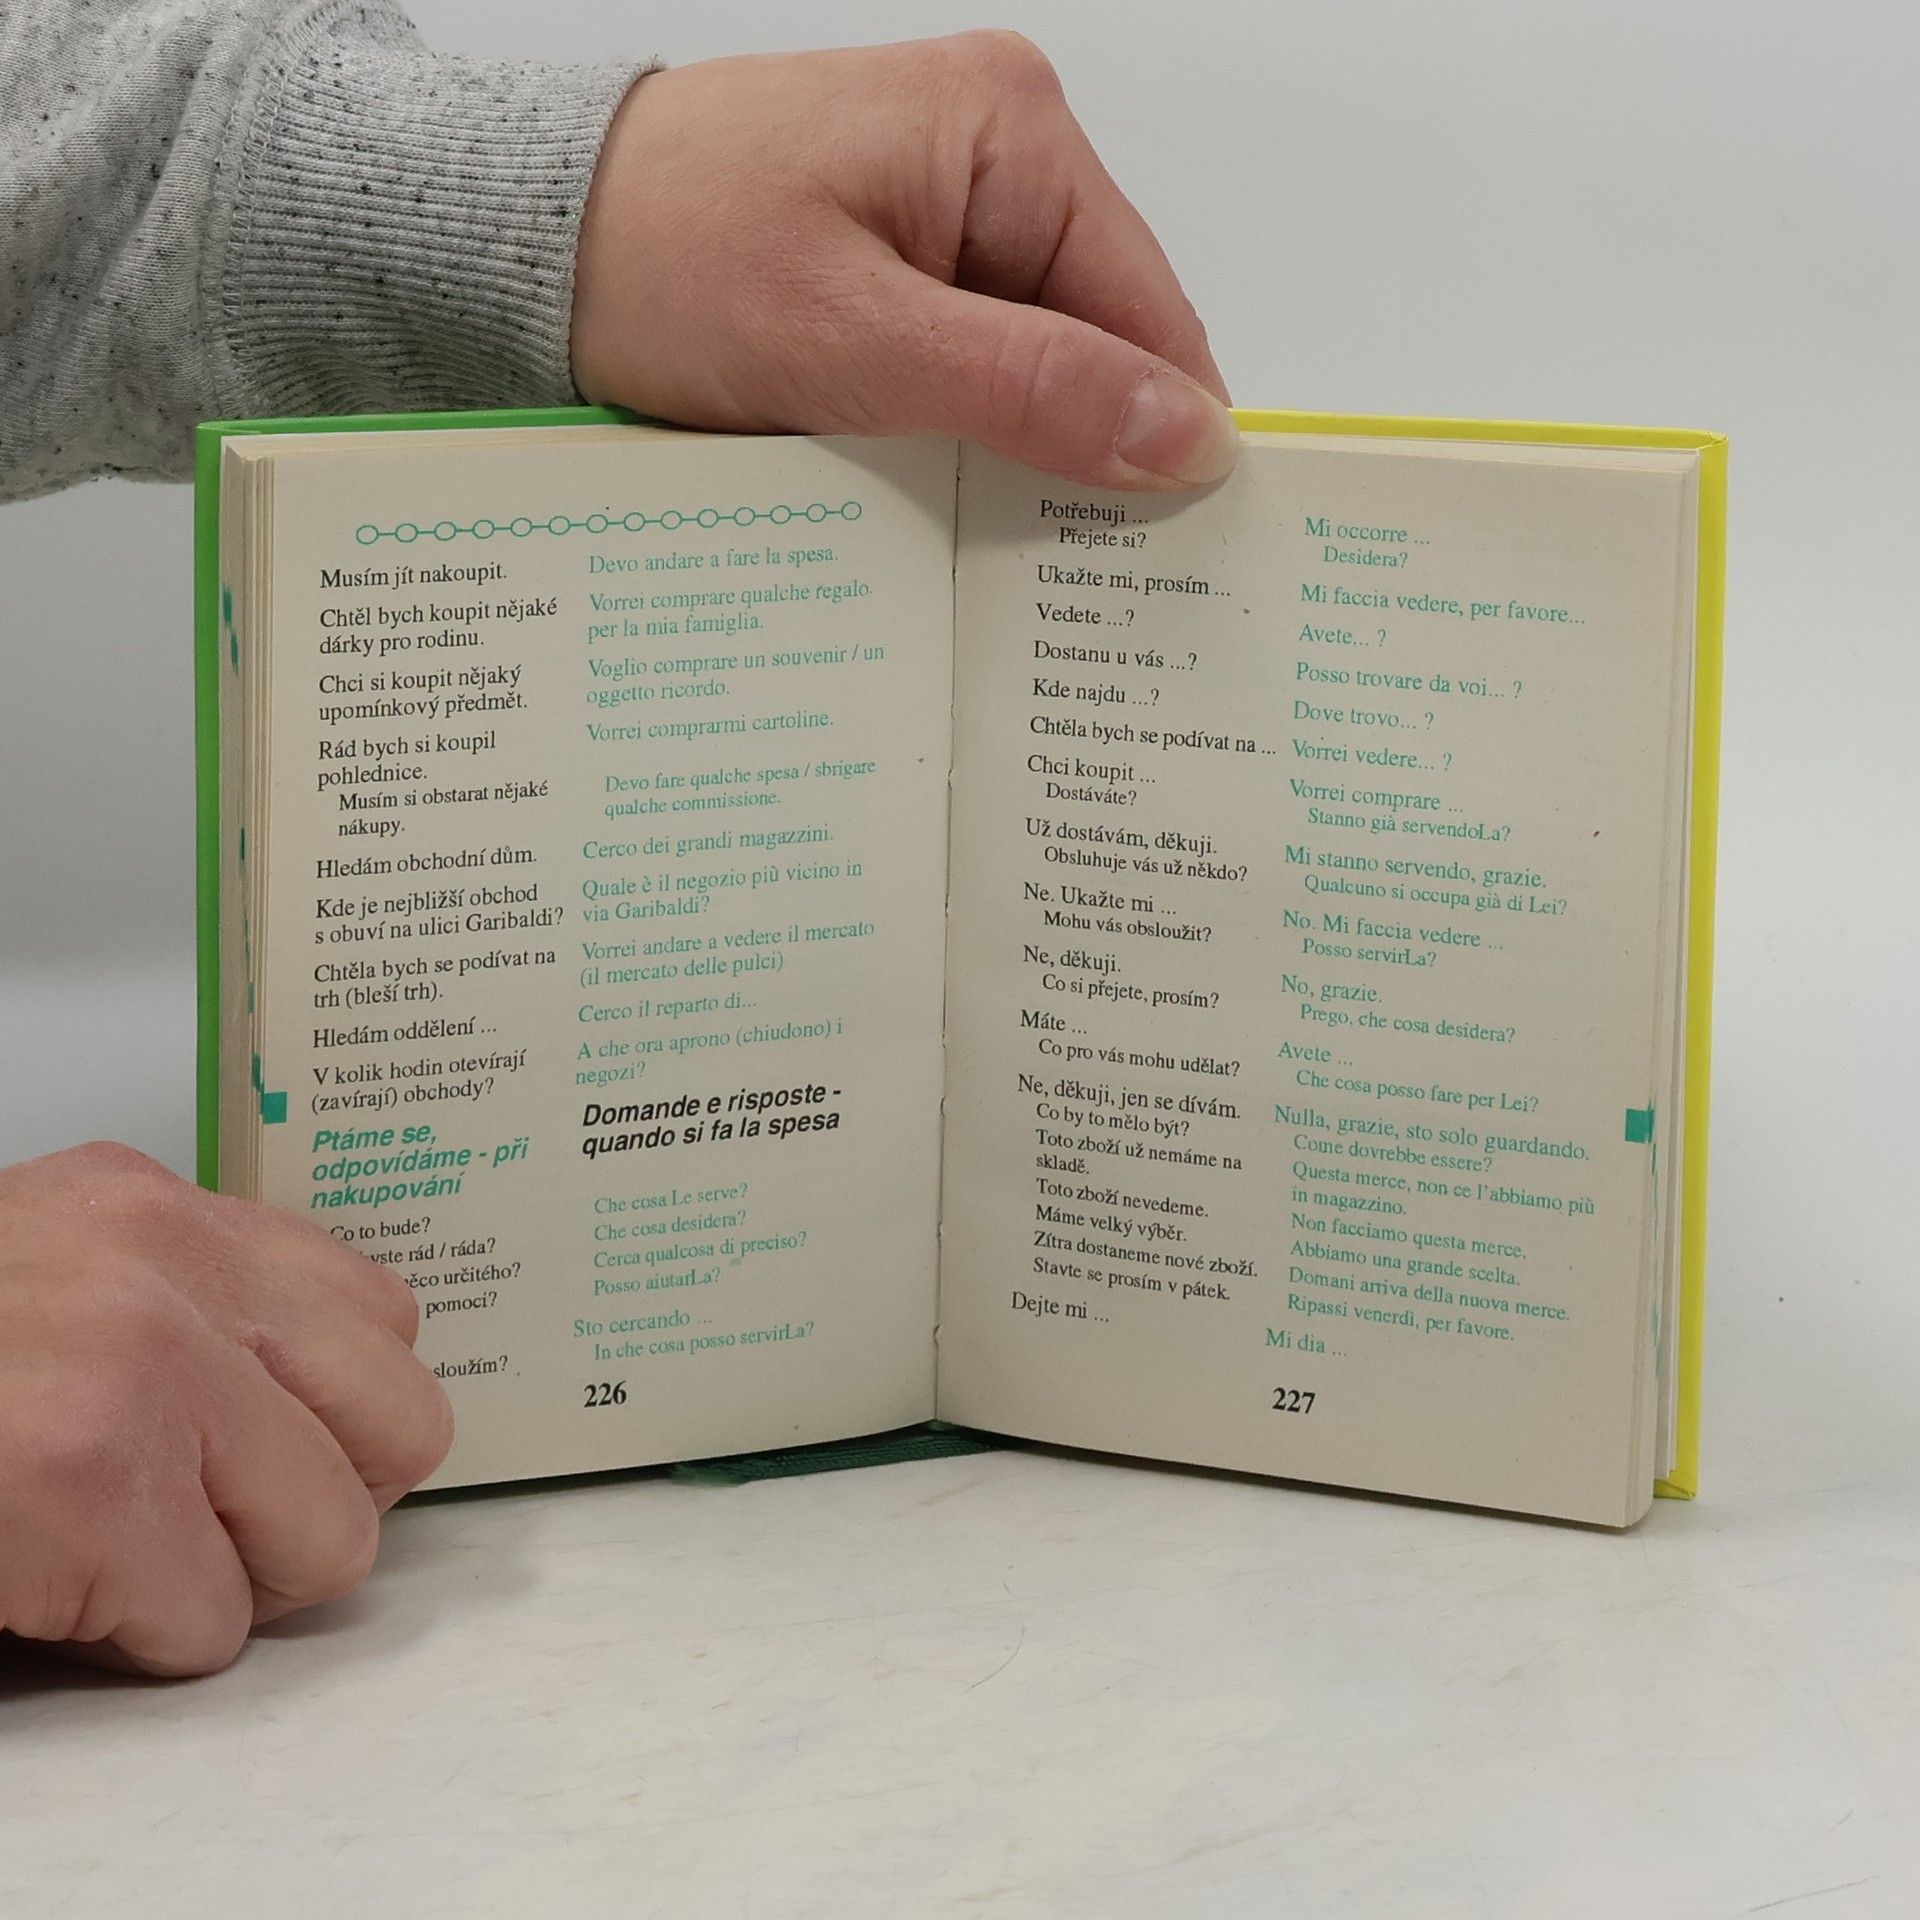 Musím jít nakoupit.
Chtěl bych koupit nějaké
dárky pro rodinu.
Chci si koupit nějaký
upomínkový předmět.
Rád bych si koupil
pohlednice.
Musím si obstarat nějaké
nákupy.
Hledám obchodní dům.
Kde je nejbližší obchod
s obuví na ulici Garibaldi?
Chtěla bych se podívat na
trh (bleší trh).
Hledám oddělení ...
V kolik hodin otevírají
(zavírají) obchody?
Ptáme se,
odpovídáme - při
nakupování
Co to bude?
rád / ráda?
určitého?
pomoci?
sloužím?
Devo andare a fare la spesa.
Vorrei comprare qualche regalo.
per la mia famiglia.
Voglio comprare un souvenir / un
oggetto ricordo.
Vorrei comprarmi cartoline.
Devo fare qualche spesa / sbrigare
qualche commissione.
Cerco dei grandi magazzini.
Quale è il negozio più vicino in
via Garibaldi?
Vorrei andare a vedere il mercato
(il mercato delle pulci)
Cerco il reparto di...
A che ora aprono (chiudono) i
negozi?
Domande e risposte -
quando si fa la spesa
Che cosa Le serve?
Che cosa desidera?
Cerca qualcosa di preciso?
Posso aiutarLa?
Sto cercando ...
In che cosa posso servirLa?
226
Potřebuji ...
Přejete si?
Ukažte mi, prosím ...
Vedete ...?
Dostanu u vás ...?
Kde najdu ...?
Chtěla bych se podívat na ...
Chci koupit ...
Dostáváte?
Už dostávám, děkuji.
Obsluhuje vás už někdo?
Ne. Ukažte mi ...
Mohu vás obsloužit?
Ne, děkuji.
Co si přejete, prosím?
Máte ...
Co pro vás mohu udělat?
Ne, děkuji, jen se dívám.
Co by to mělo být?
Toto zboží už nemáme na
skladě.
Toto zboží nevedeme.
Máme velký výběr.
Zítra dostaneme nové zboží.
Stavte se prosím v pátek.
Dejte mi ...
Mi occorre ...
Desidera?
Mi faccia vedere, per favore...
Avete... ?
Posso trovare da voi... ?
Dove trovo... ?
Vorrei vedere... ?
Vorrei comprare ...
Stanno già servendoLa?
Mi stanno servendo, grazie.
Qualcuno si occupa già di Lei?
No. Mi faccia vedere ...
Posso servirLa?
No, grazie.
Prego, che cosa desidera?
Avete ...
Che cosa posso fare per Lei?
Nulla, grazie, sto solo guardando.
Come dovrebbe essere?
Questa merce, non ce l'abbiamo più
in magazzino.
Non facciamo questa merce.
Abbiamo una grande scelta.
Domani arriva della nuova merce.
Ripassi venerdì, per favore.
Mi dia ...
227